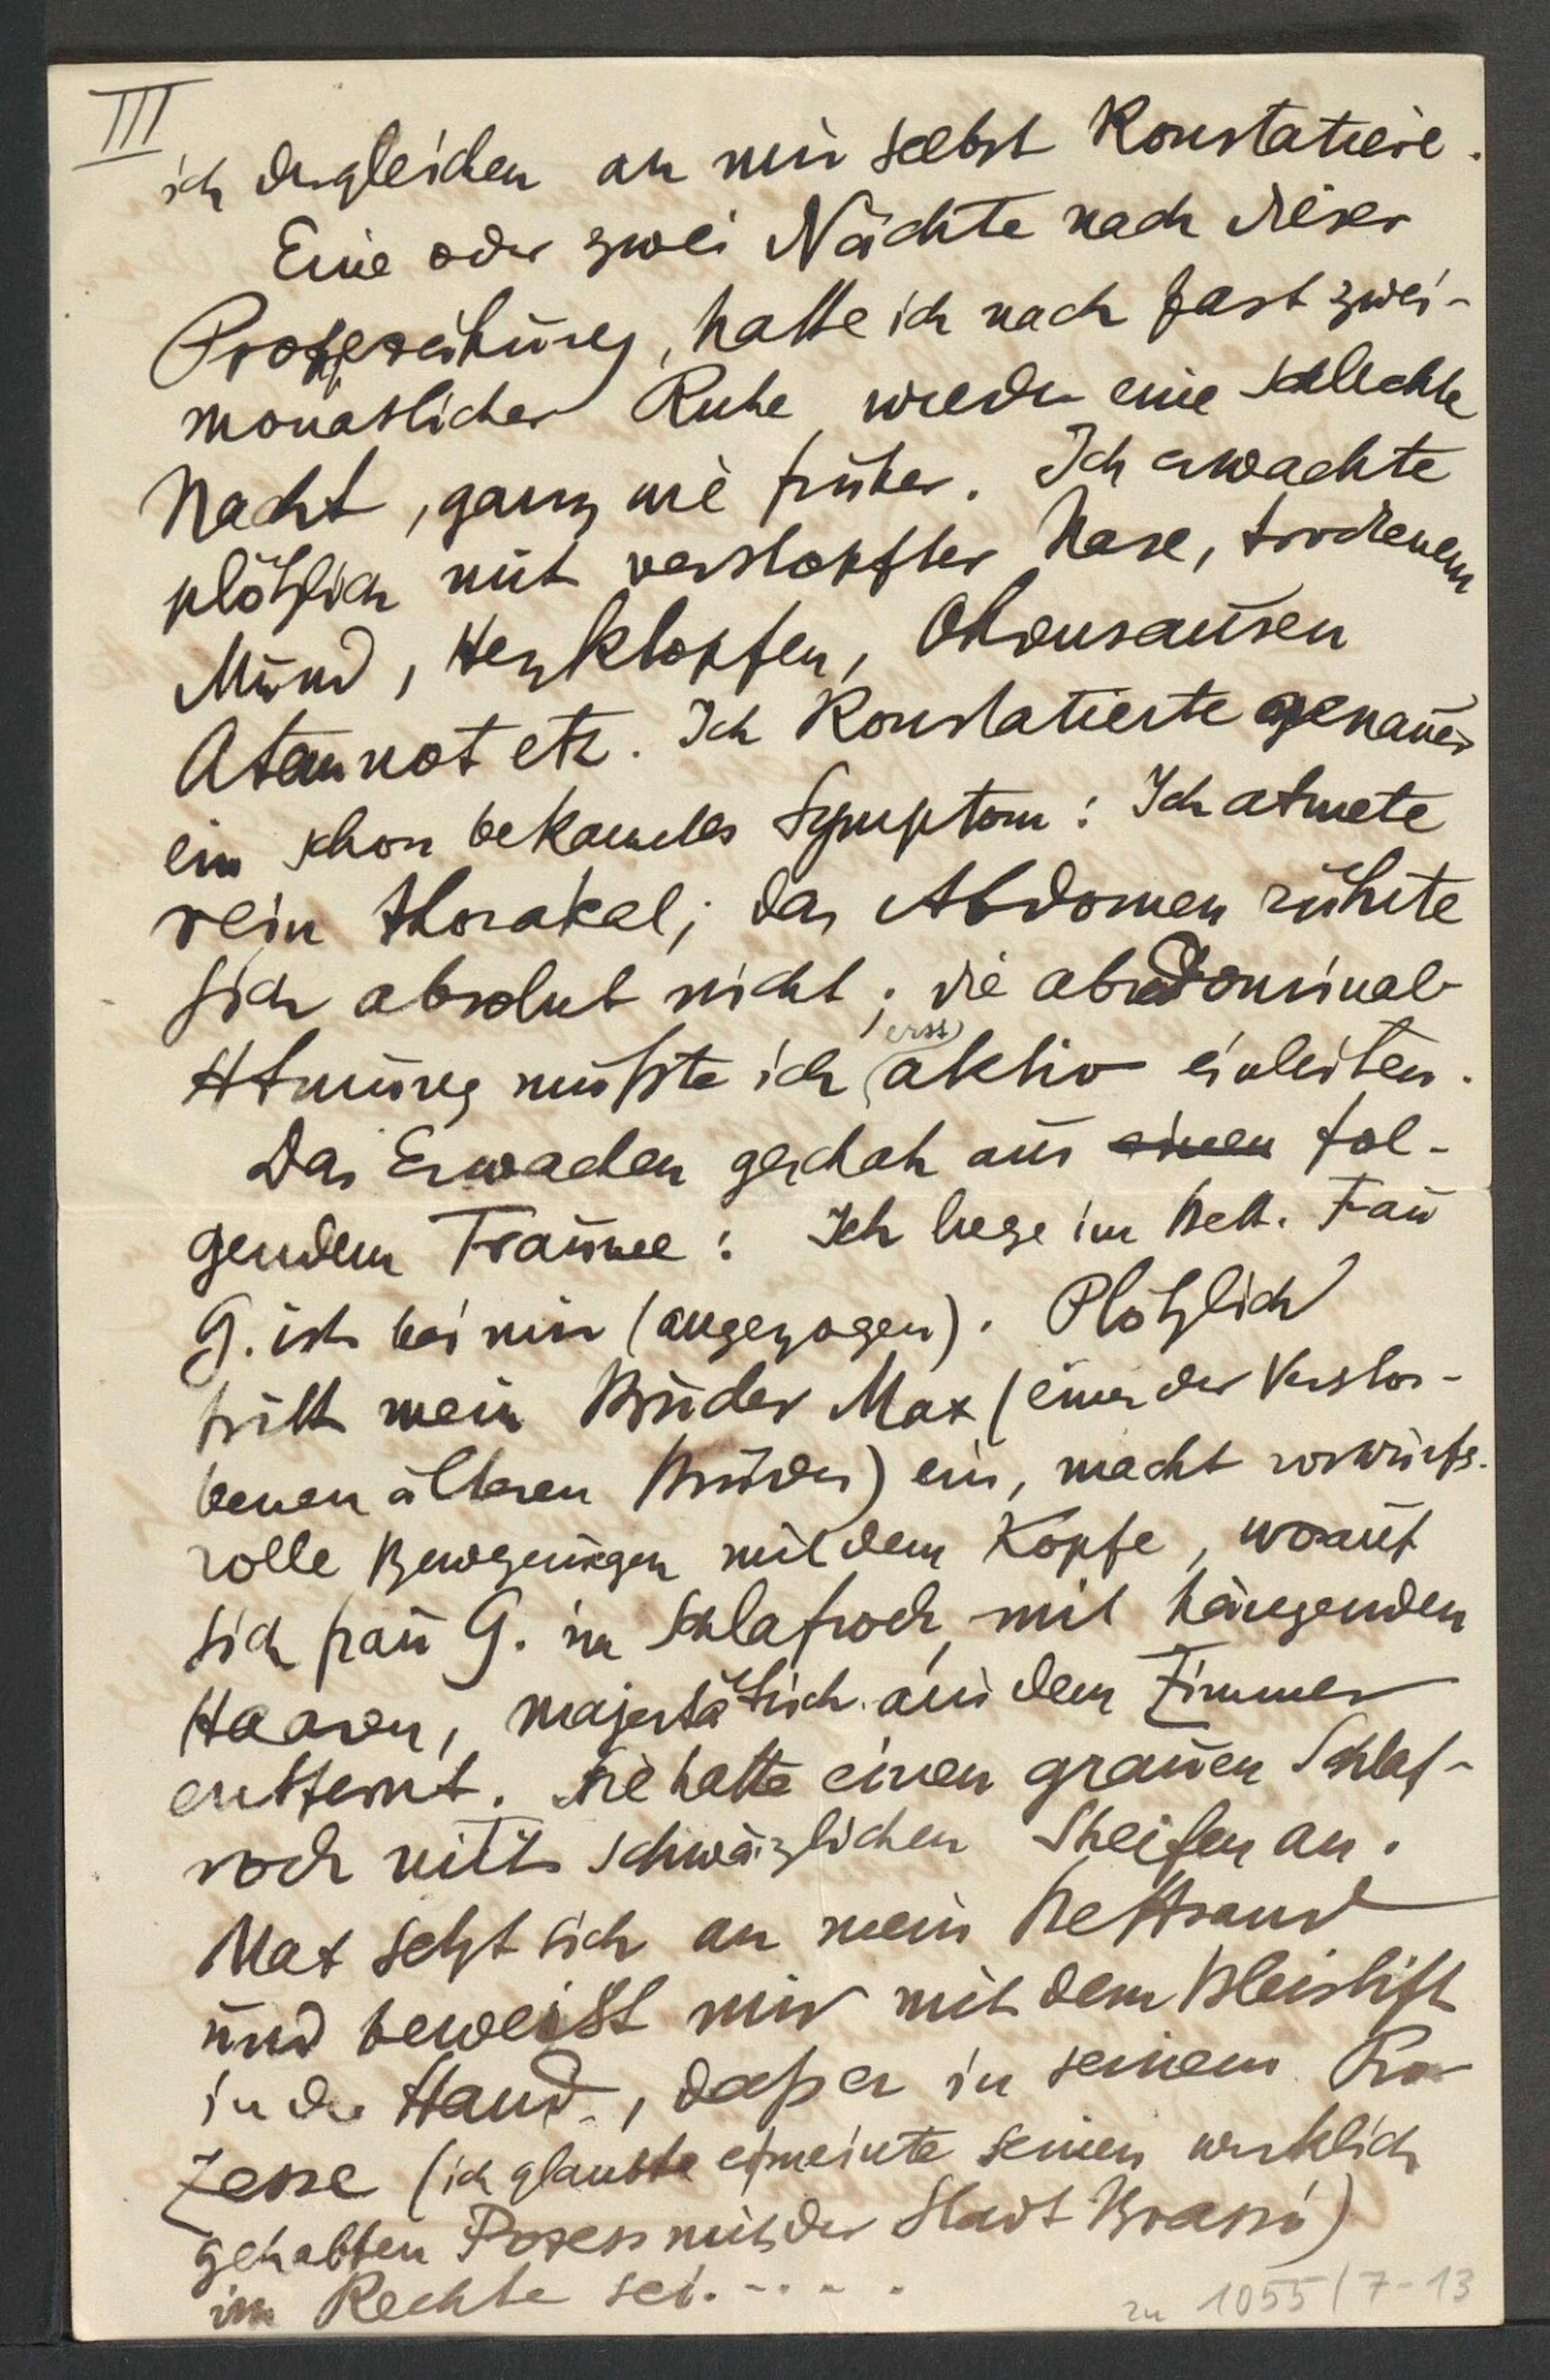 III
ich dergleichen an mir selbst Konstatiere.
Eine oder zwei Nächte nach dieser
Prophezeihung, hatte ich nach fast zwei-
monatlicher Ruhe wieder eine schlechte
Nacht, ganz wie früher. Ich erwachte
plötzlich mit verstopfter Nase, trockenem
Mund, Herzklopfen, Ohrensausen
Atemnot etz. Ich Konstatierte genauer
ein schon bekanntes Symptom: Ich atmete
rein thorakal; das Abdomen rührte
sich absolut nicht; die abdominal-
erst
Atmung mußte ich aktiv einleiten.
Das Erwachen geschah aus einem fol-
gendem Traume: Ich liege im Bett. Frau
G. ist bei mir (angezogen). Plötzlich
tritt mein Bruder Max (einer der Verstor-
benen älteren Brüder) ein, macht vorwurfs-
volle Bewegungen mit dem Kopfe, worauf
sich frau G. im Schlafrock, mit hängenden
Haaren, majestätisch aus dem Zimmer
entfernt. Sie hatte einen grauen Schlaf-
rock mit schwärzlichen Streifen an.
Max setzt sich an mein Bettrand
und beweist mir mit dem Bleistift
in der Hand, daß er in seinem Pro-
zesse (ich glaubte er meinte seinen wirklich
gehabten Prozess mit der Stadt Brassó)
im Rechte sei. - . - .
zu 1055/7-13